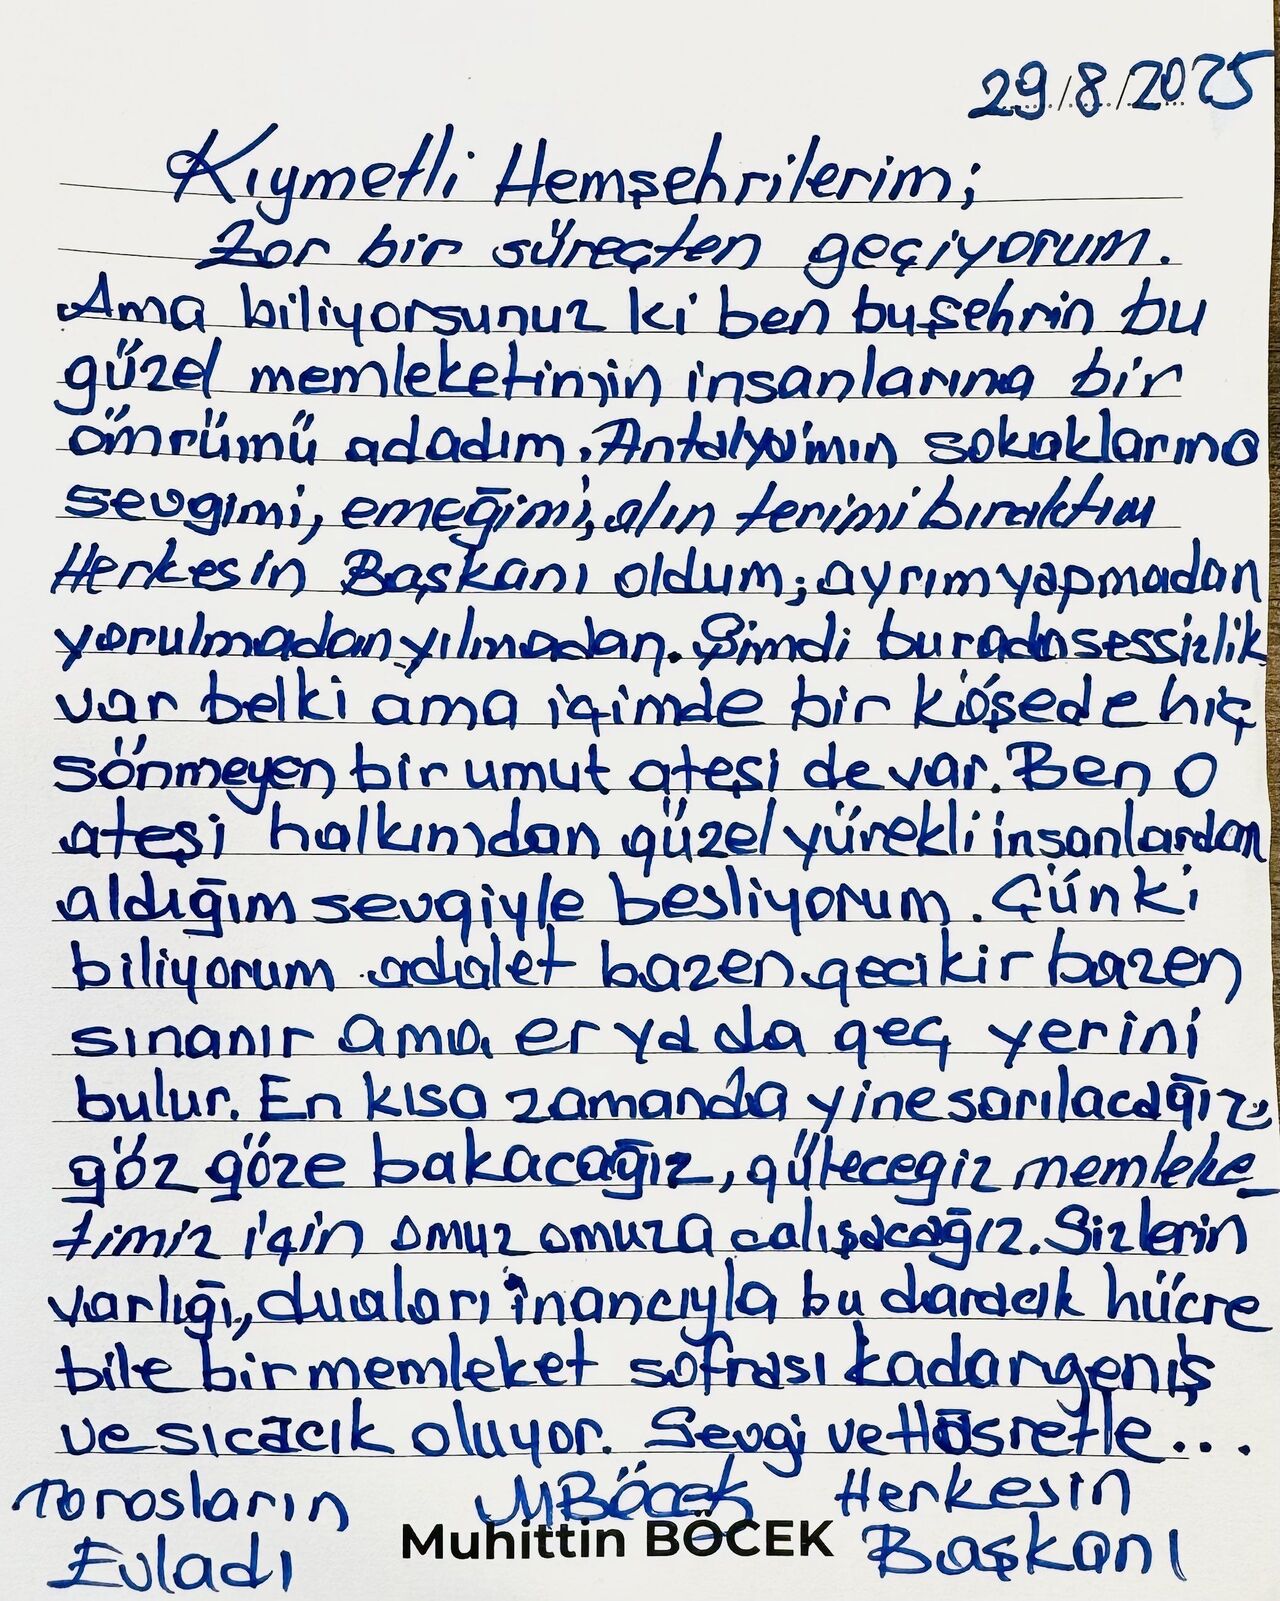 29/8/2025
Kıymetli Hemşehrilerim;
Zor bir süreçten geçiyorum.
Ama biliyorsunuz ki ben bu şehrin bu
güzel memleketimin insanlarına bir
ömrümü adadım. Antalya'mın sokaklarına
sevgimi, emeğimi, alın terimi bıraktım
Herkesin Başkanı oldum; ayrım yapmadan
yorulmadan yılmadan. Şimdi burada sessizlik
var belki ama içimde bir köşede hiç
sönmeyen bir umut ateşi de var. Ben o
ateşi halkımdan güzel yürekli insanlardan
aldığım sevgiyle besliyorum. Çünki
biliyorum adalet bazen gecikir bazen
sınanır ama er ya da geç yerini
bulur. En kısa zamanda yine sarılacağız,
göz göze bakacağız, güleceğiz memleke-
timiz için omuz omuza çalışacağız. Sizlerin
varlığı, duaları inancıyla bu daracık hücre
bile bir memleket sofrası kadar geniş
ve sıcacık oluyor. Sevgi ve Hasretle...
Torosların MBöcek Herkesin
Muhittin BÖCEK
Evladı Başkanı